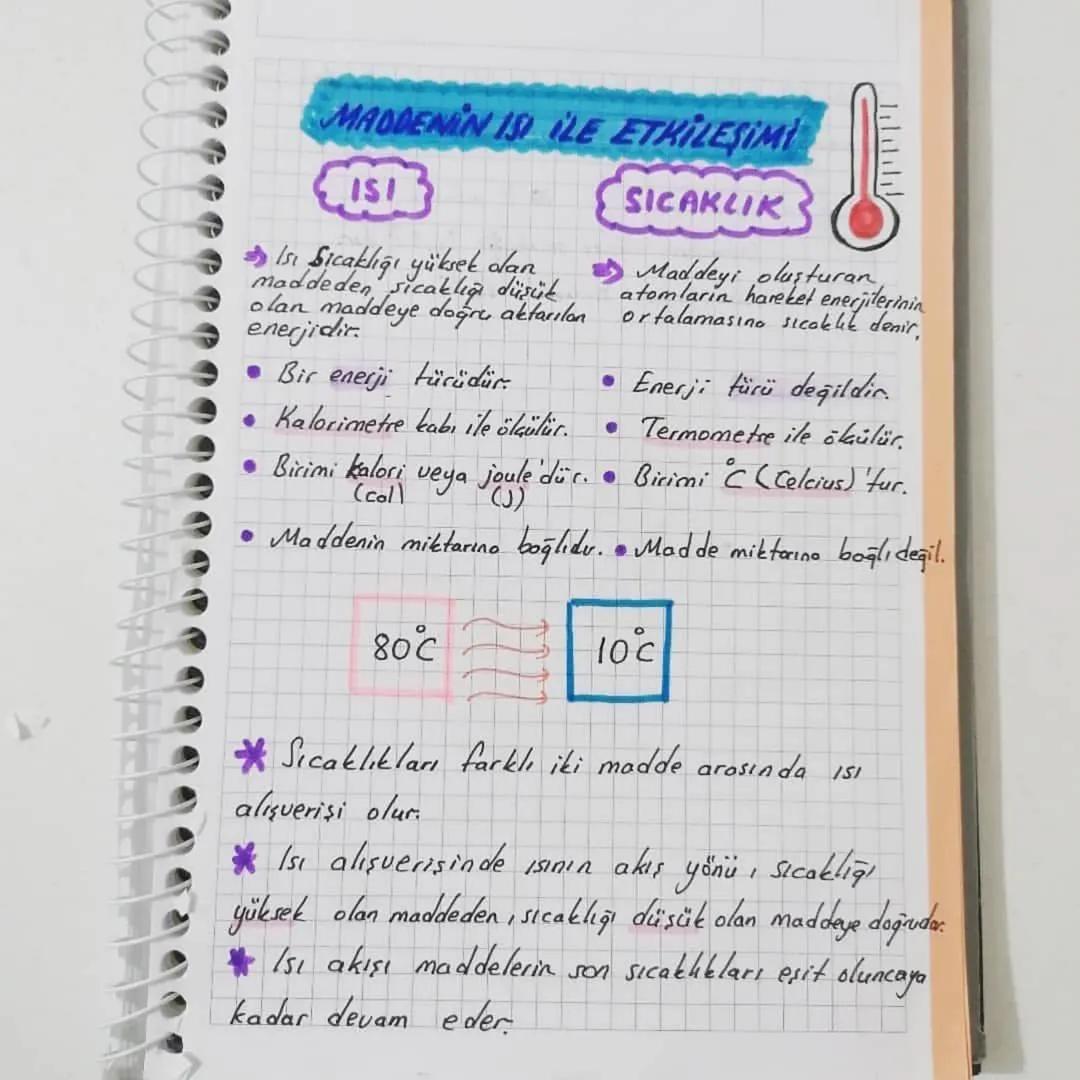 MADDENİN ISI İLE ETKİLEŞİMİ
ISI
Isı Sıcaklığı yüksek olan
maddeden, sıcaklığı düşük
olan maddeye doğru aktarılan
enerjidir.
• Bir enerji türüdür.
• Kalorimetre kabı ile ölçülür.
• Birimi kalori veya joule'dür.
(cal) (J)
• Maddenin miktarına bağlıdır.
SICAKLIK
Maddeyi oluşturan
atomların hareket enerjilerinin
ortalamasına sıcaklık denir.
• Enerji türü değildir.
• Termometre ile ölçülür.
• Birimi °C (Celcius)'tur.
• Madde miktarına bağlı değil.
80°C
10°C
* Sıcaklıkları farklı iki madde arasında ısı
alışverişi olur.
* Isı alışverişinde ısının akış yönü, sıcaklığı
yüksek olan maddeden, sıcaklığı düşük olan maddeye doğrudur.
* Isı akışı maddelerin son sıcaklıkları eşit oluncaya
kadar devam eder.